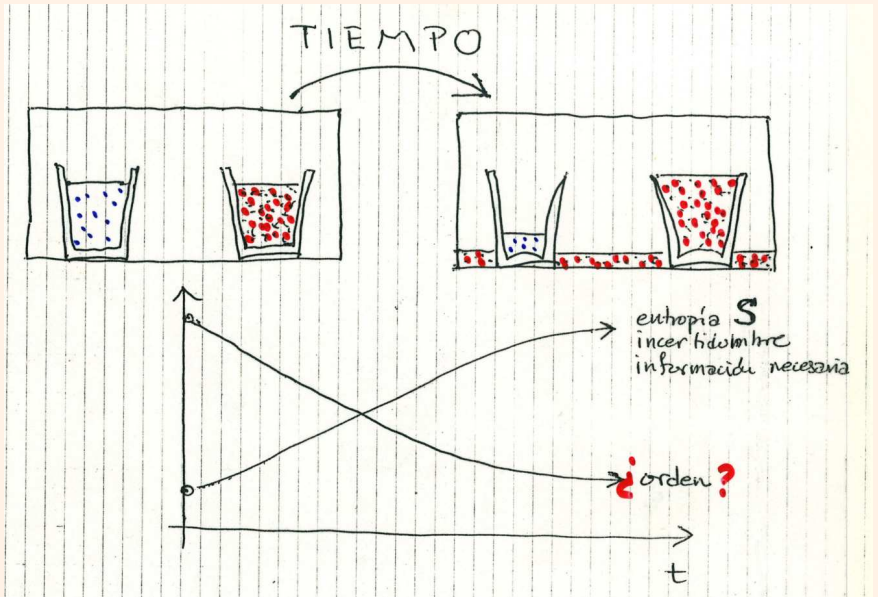 TIEMPO
entropía S
incertidumbre
información necesaria
¿orden?
t